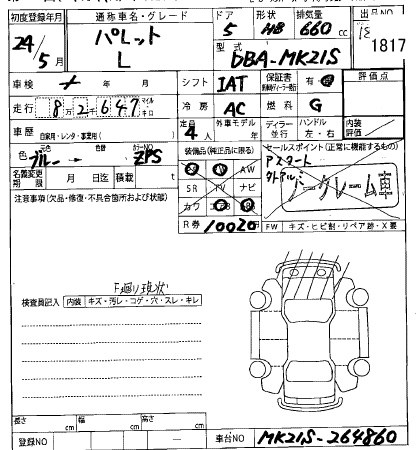 初度登録年月 通称車名・グレード ドア 形状 排気量
24/5月 パレット L 5 HB 660 cc
1817
型式 DBA-MK21S
車検 年 月 シフト IAT 保証書 有 評価点
走行 8万2千647 マイル キロ 冷房 AC 燃料 G 内装評価
車歴 自家用・レンタ・事業用( ) 定員 4人 外車モデル年 ディーラー 並行 ハンドル 左・右
色 元色 ブルー 色替 カラーNO ZPS 装備品(純正品に限る) セールスポイント(正常に機能するもの)
Pスタート
名義変更期限 月 日迄 積載 t SR TV ナビ
注意事項(欠品・修復・不具合箇所および状態) カワ エアB
R券 10020円 FW キズ・ヒビ割・リペア跡・X要
下廻り現状
検査員記入 内装 キズ・汚レ・コゲ・穴・スレ・キレ
長さ cm 幅 cm 高さ cm
登録NO 車台NO MK21S-264860